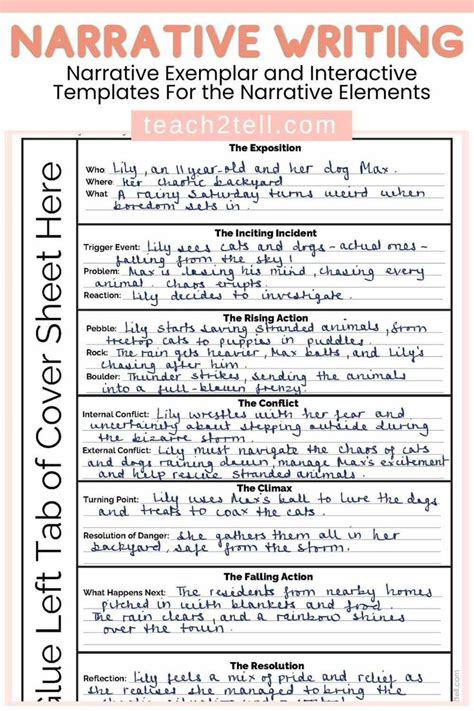 NARRATIVE WRITING
Narrative Exemplar and Interactive
Templates For the Narrative Elements
teach2tell.com
Glue Left Tab of Cover Sheet Here
The Exposition
Who: Lily, an 11 year-old and her dog Max.
Where: her chaotic backyard
What: A rainy Saturday turns weird when
boredom sets in.
The Inciting Incident
Trigger Event: Lily sees cats and dogs - actual ones -
falling from the sky!
Problem: Max is losing his mind, chasing every
animal. Chaos erupts.
Reaction: Lily decides to investigate.
The Rising Action
Pebble: Lily starts saving stranded animals, from
treetop cats to puppies in puddles.
Rock: The rain gets heavier, Max bolts, and Lily's
chasing after him.
Boulder: Thunder strikes, sending the animals
into a full-blown frenzy!
The Conflict
Internal Conflict: Lily wrestles with her fear and
uncertainity about stepping outside during
the bizarre storm.
External Conflict: Lily must navigate the chaos of cats
and dogs raining down, manage Max's excitement
and help rescue stranded animals.
The Climax
Turning Point: Lily uses Max's ball to lure the dogs
and treats to coax the cats.
Resolution of Danger: She gathers them all in her
backyard, safe from the storm.
The Falling Action
What Happens Next: The residents from nearby homes
pitched in with blankets and food.
The rain clears, and a rainbow shines
over the town.
The Resolution
Reflection: Lily feels a mix of pride and relief as
she realises she managed to bring the